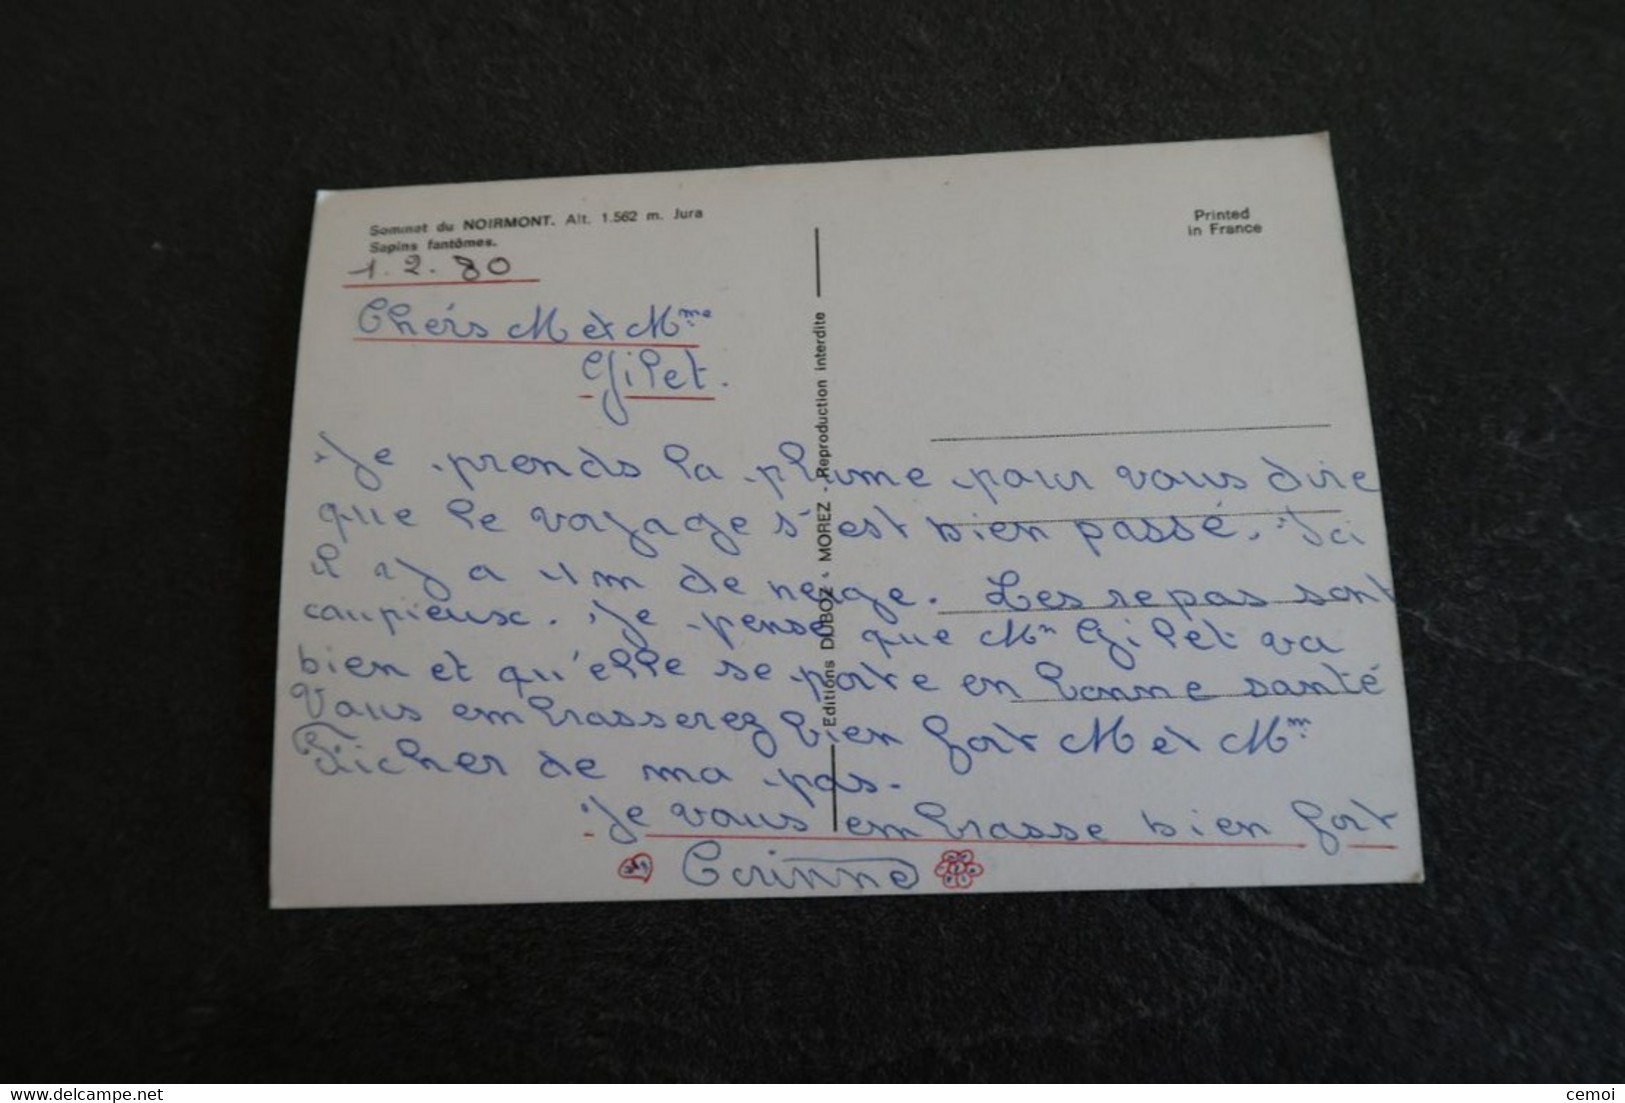 Sommet du NOIRMONT. Alt. 1.562 m. Jura
Sapins fantômes.
Printed
in France
1.2.80
Chérs M et Mme
Gilet.
Je prends la plume pour vous dire
que le voyage s'est bien passé. Ici
il y a 1m de neige. Les repas sont
caupieux. Je pense que Mm Gilet va
bien et qu'elle se porte en bonne santé
Vous embrasserez bien fort M et Mm
de ma pas.
Je vous embrasse bien fort
Corinne
Editions DUBOZ - MOREZ - Reproduction interdite
cemoi
https://www.delcampe.net